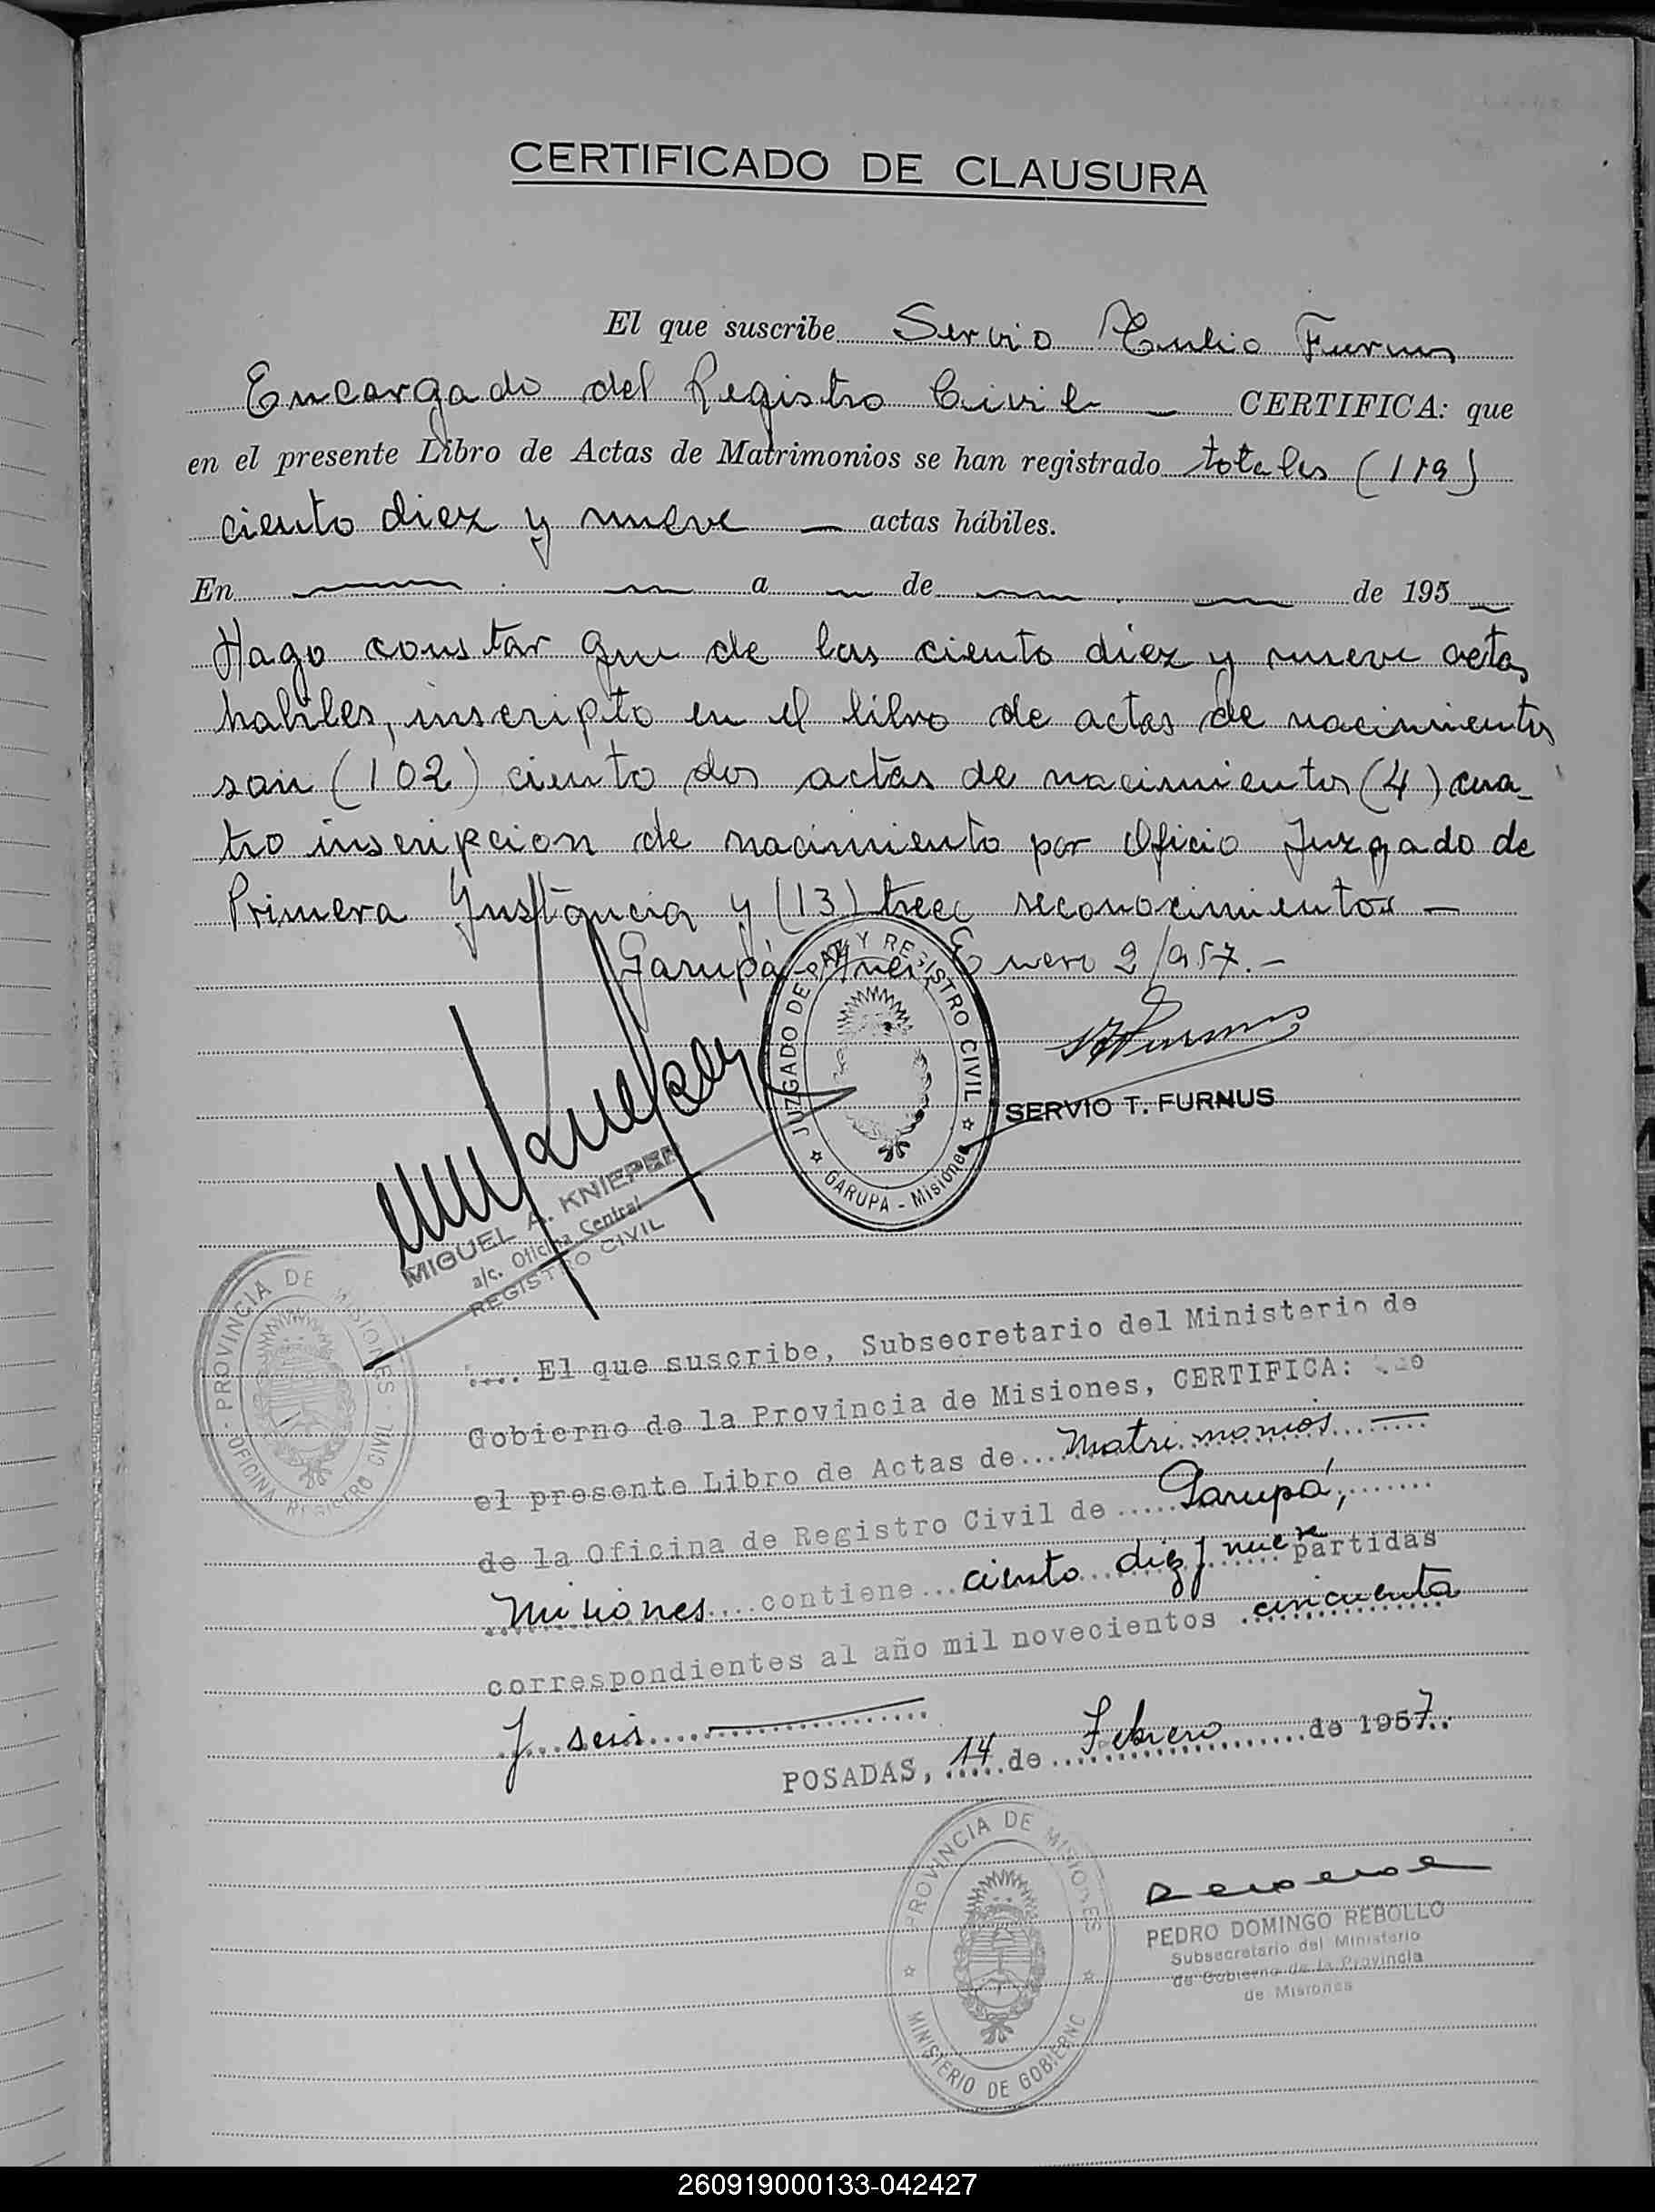 CERTIFICADO DE CLAUSURA
El que suscribe Servio Tulio Furnus
Encargado del Registro Civil — CERTIFICA: que
en el presente Libro de Actas de Matrimonios se han registrado totales (119)
ciento diez y nueve — actas hábiles.
En a de de 195
Hago constar que de las ciento diez y nueve actas
habiles, inscripto en el libro de actas de nacimientos
son (102) ciento dos actas de nacimientos (4) cua-
tro inscripcion de nacimiento por Oficio Juzgado de
Primera Instancia y (13) trece reconocimientos —
Garupá, Mnes, Enero 2/957.-
JUZGADO DE PAZ Y REGISTRO CIVIL
GARUPA - Misiones
SERVIO T. FURNUS
MIGUEL A. KNIEPER
a/c. Oficina Central
REGISTRO CIVIL
PROVINCIA DE MISIONES
OFICINA REGISTRO CIVIL
.... El que suscribe, Subsecretario del Ministerio de
Gobierno de la Provincia de Misiones, CERTIFICA: que
el presente Libro de Actas de Matrimonios —
de la Oficina de Registro Civil de Garupá,
Misiones contiene ciento diez y nueve partidas
correspondientes al año mil novecientos cincuenta
y seis
POSADAS, 14 de Febrero de 1957.
PROVINCIA DE MISIONES
MINISTERIO DE GOBIERNO
PEDRO DOMINGO REBOLLO
Subsecretario del Ministerio
de Gobierno de la Provincia
de Misiones
260919000133-042427